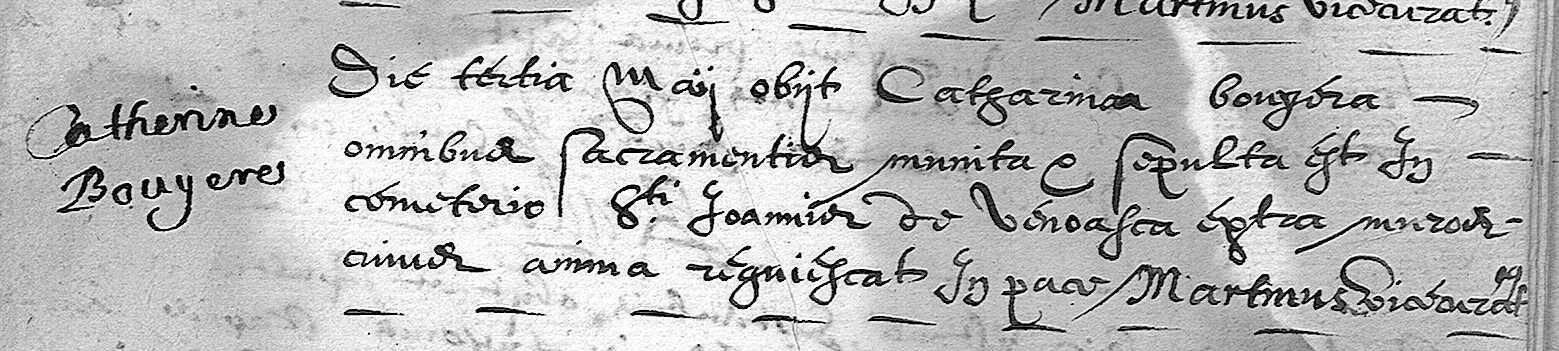 Martinus vicecurat.
Catherine
Bouyere
Die tertia Maij obijt Catharina bouyera
omnibus sacramentis munita & sepulta est In
cemeterio Sti Joannis de Venasca extra muros
cuius anima requiescat In pace Martinus vicecurat